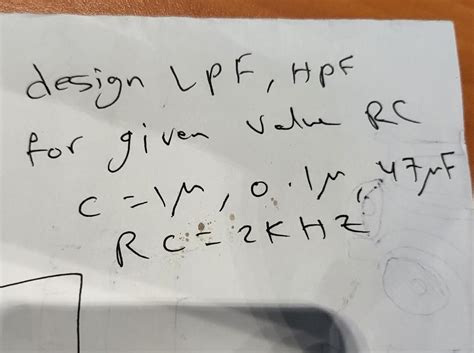 design LPF, HPF
for given value RC
C = 1µ, 0.1µ, 47µF
RC = 2KHZ